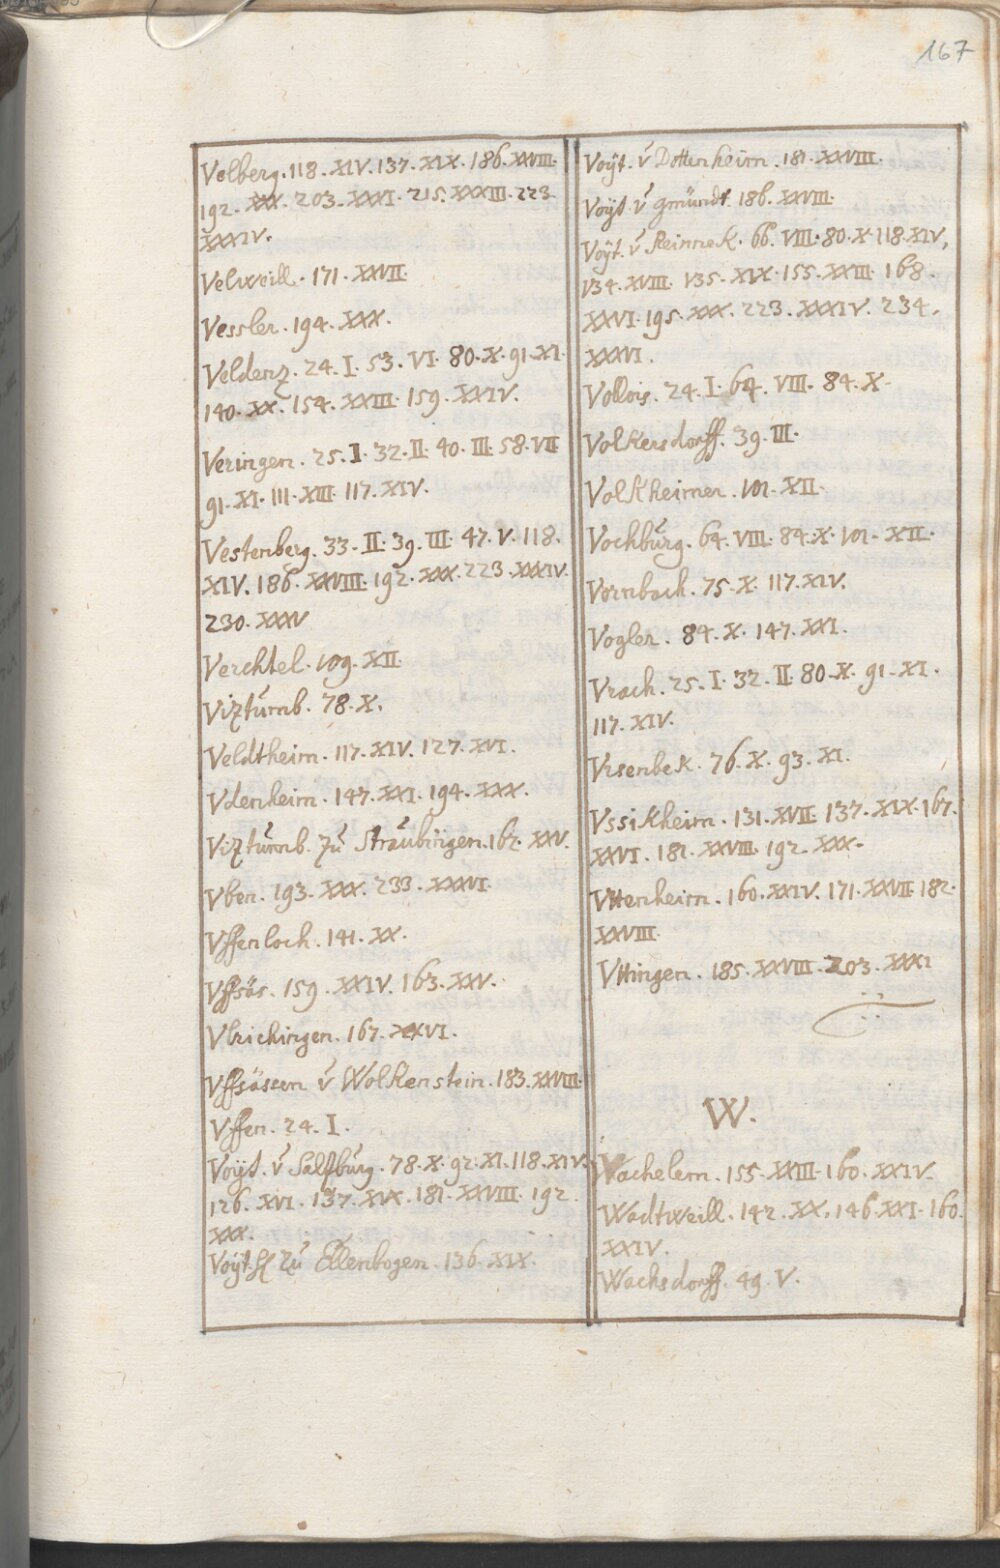 167
Velberg. 118. XIV. 137. XIX. 186. XXVIII.
192. XXX. 203. XXXI. 215. XXXIII. 223.
XXXIV.
Velweill. 171. XXVII.
Vessler. 194. XXX.
Veldenz. 24. I. 53. VI. 80. X. 91. XI.
140. XX. 154. XXIII. 159. XXIV.
Veringen. 25. I. 32. II. 40. III. 58. VII
91. XI. 111. XIII. 117. XIV.
Vestenberg. 33. II. 39. III. 47. V. 118.
XIV. 186. XXVIII. 192. XXX. 223. XXXIV.
230. XXXV
Verchtel. 109. XII.
Vizturnb. 78. X.
Veldtheim. 117. XIV. 127. XVI.
Vdenheim. 147. XXI. 194. XXX.
Vizturnb. zu Straubingen. 162. XXV.
Vben. 193. XXX. 233. XXXVI.
Vffenloch. 141. XX.
Vffsäs. 159. XXIV. 163. XXV.
Vlrichingen. 167. XXVI.
Vffsässen v̆ Wolkenstein. 183. XXVIII.
Vffen. 24. I.
Voÿt. v̆ Saltzburg. 78. X. 92. XI. 118. XIV.
126. XVI. 137. XIX. 181. XXVIII. 192.
XXX.
Voÿt zu Ellenbogen. 136. XIX.
Voÿt. v̆ Dottenheim. 181. XXVIII.
Voÿt v̆ gmündt. 186. XXVIII.
Voÿt. v̆ Reinnek. 66. VIII. 80. X. 118. XIV,
134. XVIII. 135. XIX. 155. XXIII. 168.
XXVI. 195. XXX. 223. XXXIV. 234.
XXXVI.
Vollois. 24. I. 64. VIII. 84. X.
Volkersdorff. 39. III.
Volkheimer. 101. XII.
Vochburg. 64. VIII. 84. X. 101. XII.
Vornbach. 75. X. 117. XIV.
Vogler. 84. X. 147. XXI.
Vrach. 25. I. 32. II. 80. X. 91. XI.
117. XIV.
Vrsenbek. 76. X. 93. XI.
Vssikheim. 131. XVII. 137. XIX. 167.
XXVI. 181. XXVIII. 192. XXX.
Vttenheim. 160. XXIV. 171. XXVII. 182.
XXVIII.
Vttingen. 185. XXVIII. 203. XXXI
W.
Wachelem. 155. XXIII. 160. XXIV.
Wadtweill. 142. XX. 146. XXI. 160.
XXIV.
Wachsdorff. 49. V.